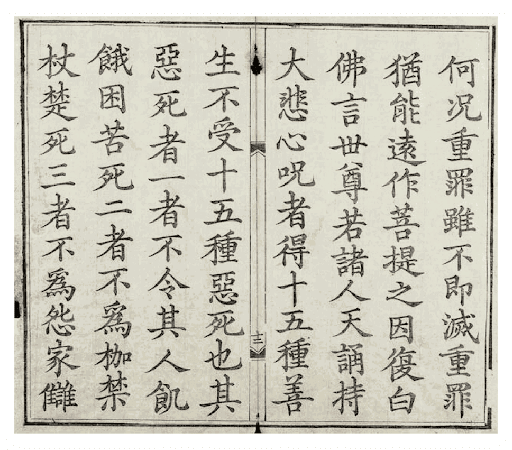 何况重罪雖不即滅重罪
猶能遠作菩提之因復白
佛言世尊若諸人天誦持
大悲心呪者得十五種善
三
生不受十五種惡死也其
惡死者一者不令其人飢
餓困苦死二者不爲枷禁
杖楚死三者不爲怨家讎